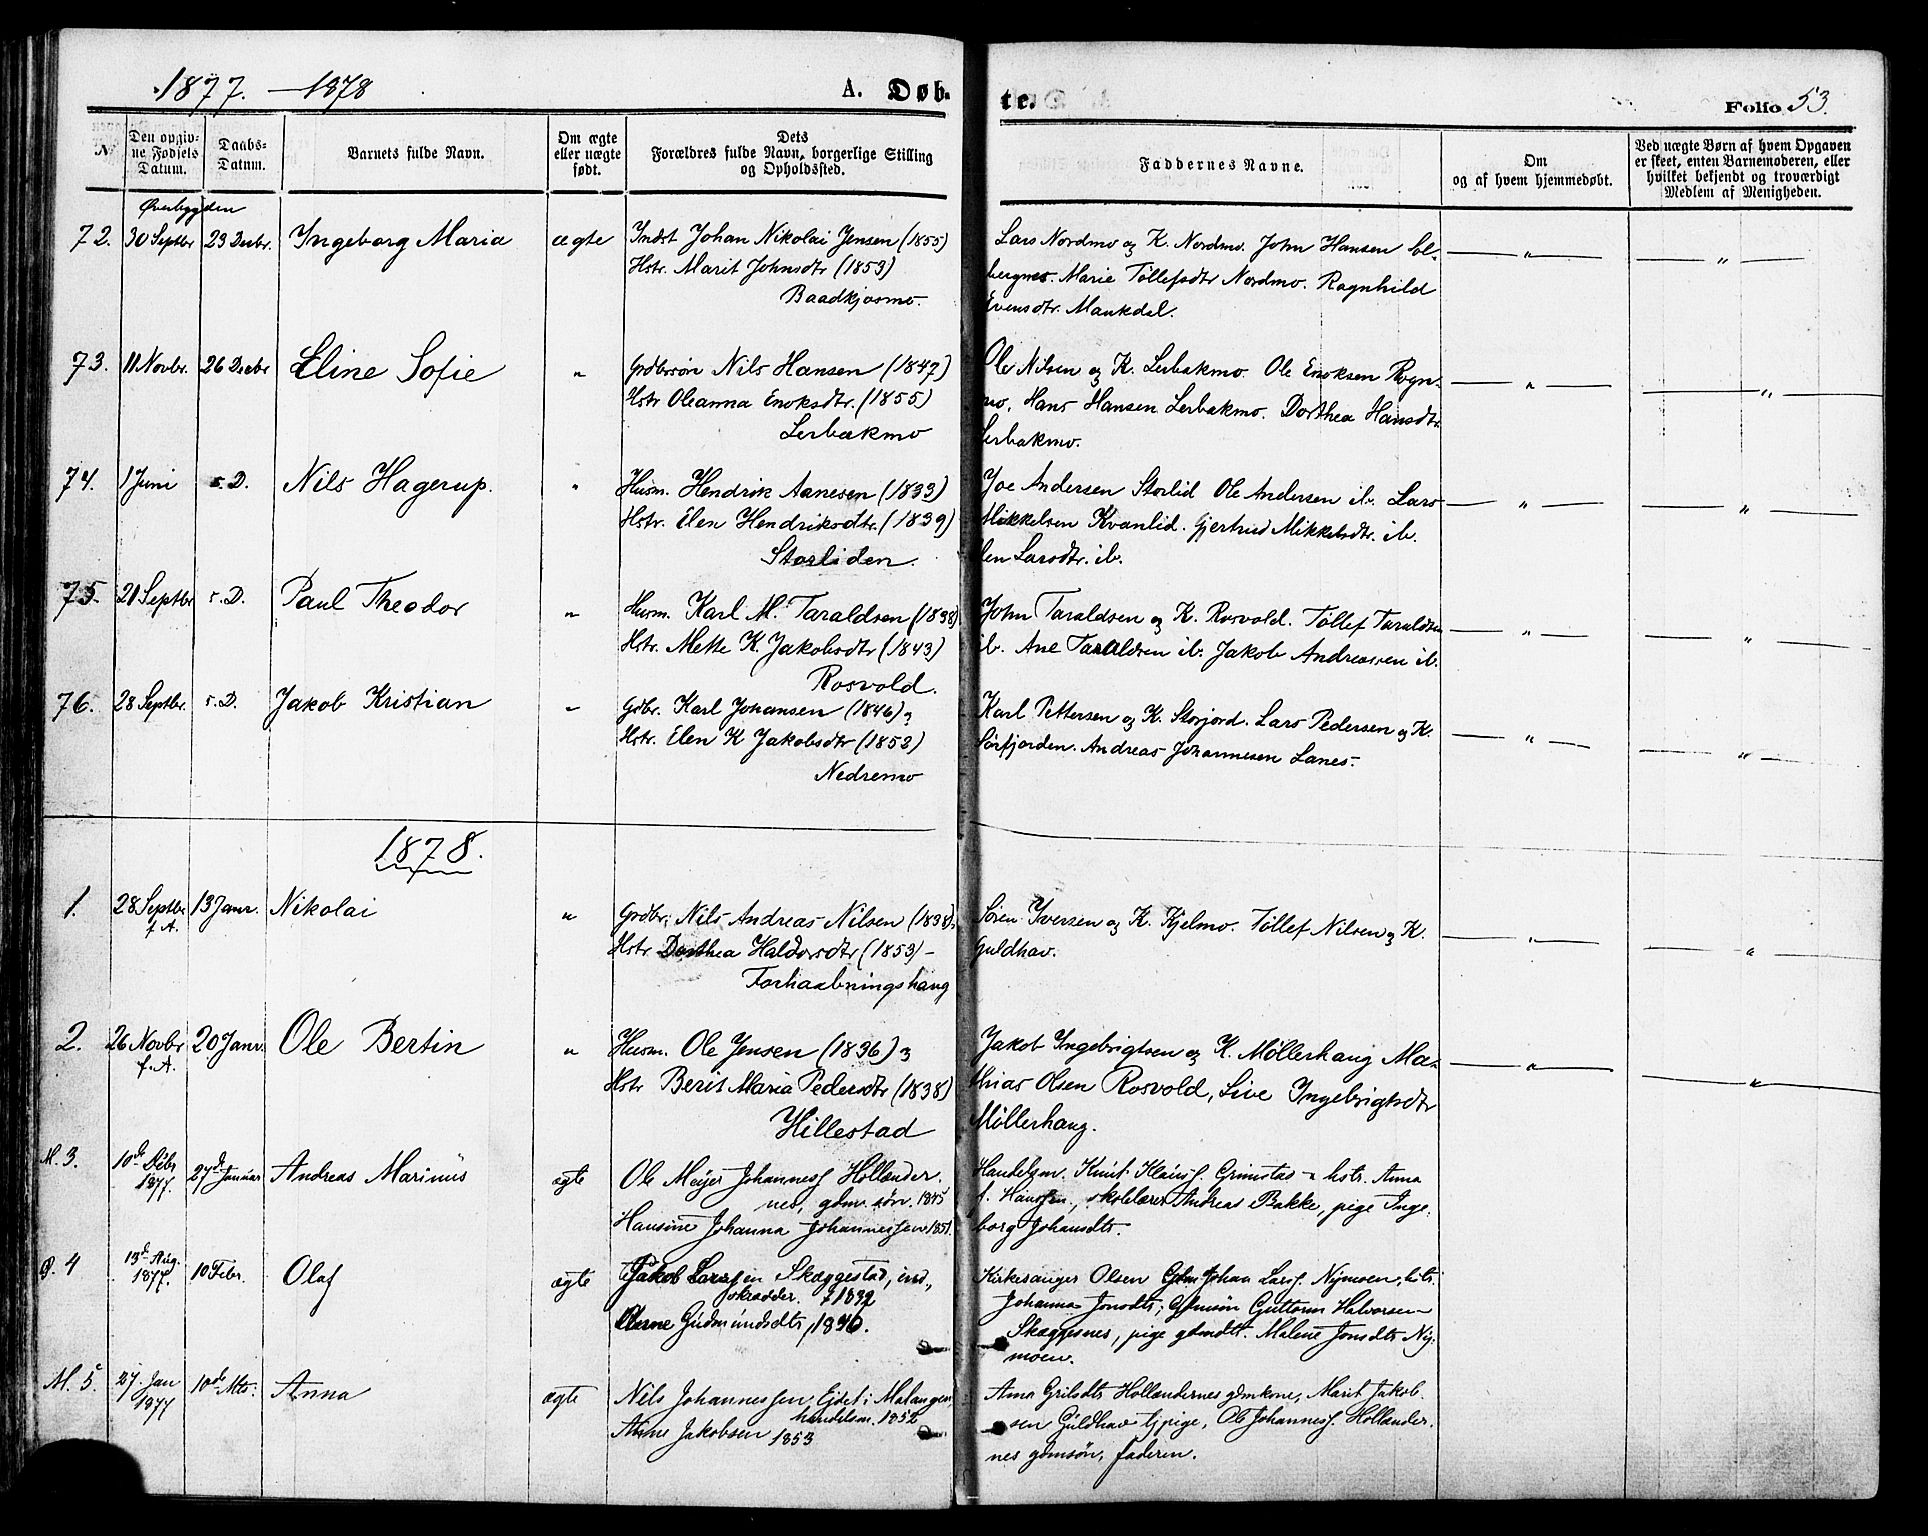 1877. — 1878
A. Døb-
te.
Folio 53.
№
Den opgiv-
ne Fødsels
Datum.
Daabs-
Datum.
Barnets fulde Navn.
Om ægte
eller uægte
født.
Dets
Forældres fulde Navn, borgerlige Stilling
og Opholdssted.
Faddernes Navne.
Om
og af hvem hjemmedøbt.
Ved uægte Børn af hvem Opgaven
er skeet, enten Barnemoderen, eller
hvilket bekjendt og troværdigt
Medlem af Menigheden.
Øverbygden
72. 30 Septbr 23 Decbr. Ingeborg Maria ægte Indst Johan Nikolai Jensen (1855)
Hstr. Marit Johnsdtr (1853)
Baadkjosmo.
Lars Nordmo og K. Nordmo. John Hansen Sol-
bergnes. Marie Tollefsdtr Nordmo. Ragnhild
Evensdtr. Maukdal.
— " — — " —
73. 11 Novbr. 26 Decbr Eline Sofie " Grdbrsøn Nils Hansen (1847)
Hstr Oleanna Enoksdtr. (1855)
Lerbakmo
Ole Nilsen og K. Lerbakmo. Ole Enoksen Rogn-
mo, Hans Hansen Lerbakmo. Dorthea Hansdtr.
Lerbakmo.
— " — — " —
74. 1 Juni s. D. Nils Hagerup. " Husm. Hendrik Aanesen (1833)
Hstr. Elen Hendriksdtr. (1839)
Storliden.
Joe Andersen Storlid Ole Andersen ib. Lars
Mikkelsen Kvanlid. Gjertrud Mikkelsdtr. ib.
Elen Larsdtr. ib.
— " — — " —
75. 21 Septbr s. D. Paul Theodor " Husm. Karl M. Taraldsen (1838)
Hstr. Mette K. Jakobsdtr (1843)
Rosvold.
John Taraldsen og K. Rosvold. Tollef Taraldsen
ib. Ane Taraldsen ib. Jakob Andreassen ib.
— " — — " —
76. 28 Septbr. s. D. Jakob Kristian " Gdbr. Karl Johansen (1846) og
Hstr. Elen K Jakobsdtr (1852)
Nedremo
Karl Pettersen og K. Storjord. Lars Pedersen og K.
Sørfjorden. Andreas Johannesen Lanes.
— " — — " —
1878.
1. 28 Septbr 13 Janr. Nikolai " Grdbr. Nils Andreas Nilsen (1838).
f. A.
Hstr Dorthea Haldorsdtr (1853) —
Forhaabningshaug
Søren Iversen og K. Kjelmo. Tollef Nilsen og K.
Guldhav.
— " — — " —
2. 26 Novbr 20 Janr. Ole Bertin " Husm. Ole Jensen (1836) og
f. A.
Hstr Berit Maria Pedersdtr (1838)
Hillestad
Jakob Ingebrigtsen og K. Møllerhaug Ma-
thias Olsen Rosvold, Live Ingebrigtsdtr
Møllerhaug.
— " — — " —
M. 3. 10de Dcbr 27de Januar Andreas Marinus ægte Ole Meyer Johannesf. Hollænder.
1877.
nes, gdm. sön. 1845
Hansine Johanna Johannessen 1851.
Handelsm. Knut Klausf. Grimstad — hstr. Anna
f. Hanssen, skolelærer Andreas Bakke, pige Inge-
borg Johansdtr.
D. 4 13de Aug. 10 Febr. Olaf ægte Jakob Larssen Skæggestad, ind.,
1877.
skrædder. f 1832
Anne Gudmundsdtr, 1840.
Kirkesanger Olsen Gdm Johan Larsf. Nymoen, hstr.
Johanna Jonsdtr; Gdmsön Guttorm Halvorsen
Skæggesnes, pige gdmdtt. Malene Jonsdtr Ny-
moen.
M. 5. 27. Jan 10de Mts. Anna ægte Nils Johannessen Ejdet i Malangen,
1877
handelsm. 1852
Anne Jakobsen 1853
Anna Grilsdtr Hollændernes gdmkone, Marit Jakob-
sen Guldhav tjpige, Ole Johannesf. Hollænder-
nes gdmsön, faderen.